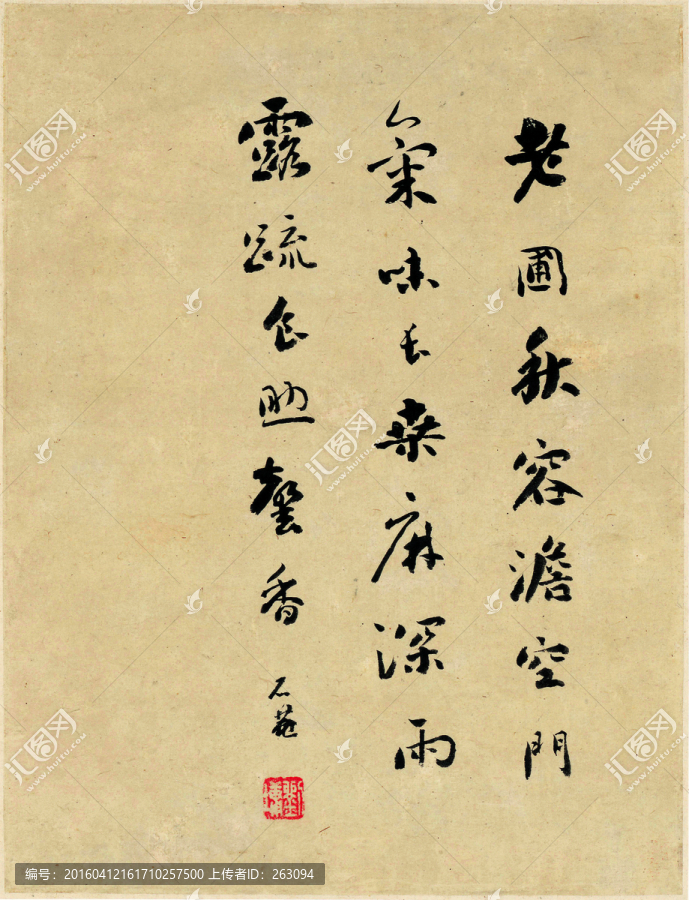 老圃秋容澹空門
氣味長桑麻深雨
露蔬食助馨香
石菴
汇图网
www.huitu.com
编号:20160412161710257500 上传者ID:263094